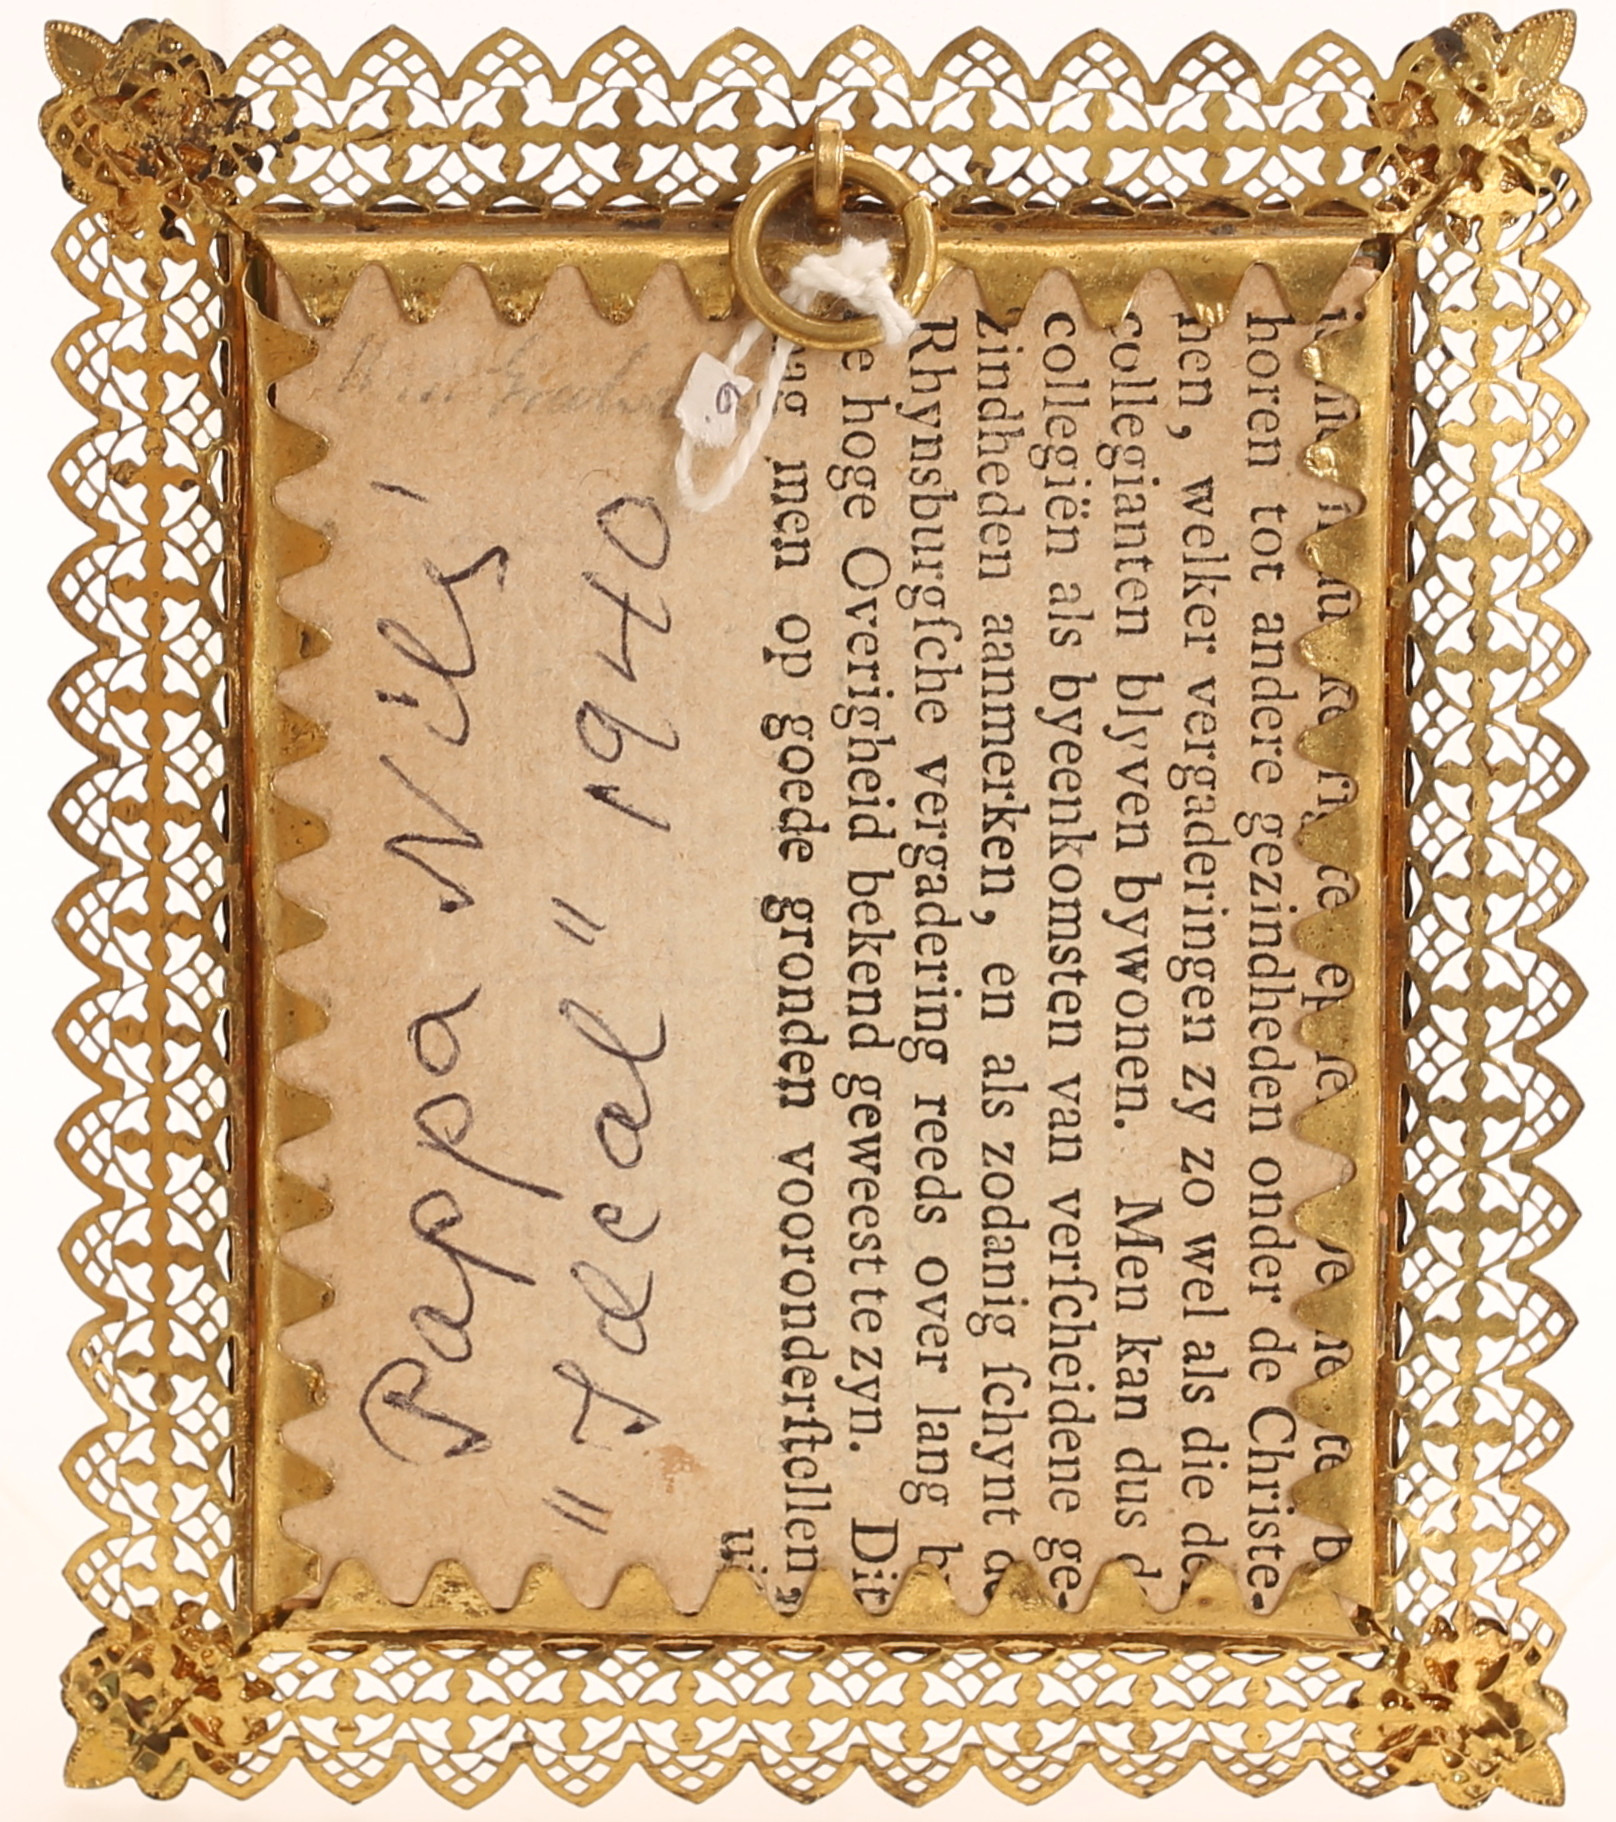 horen tot andere gezindheden onder de Christe-
nen, welker vergaderingen zy zo wel als die
collegianten blyven bywonen. Men kan dus
collegiën als byeenkomsten van verſcheidene ge-
zindheden aanmerken, en als zodanig ſchynt
Rhynsburgſche vergadering reeds over lang
hoge Overigheid bekend geweest te zyn. Dit
men op goede gronden vooronderſtellen,
Pappa Nils'
" Ideal " 1940